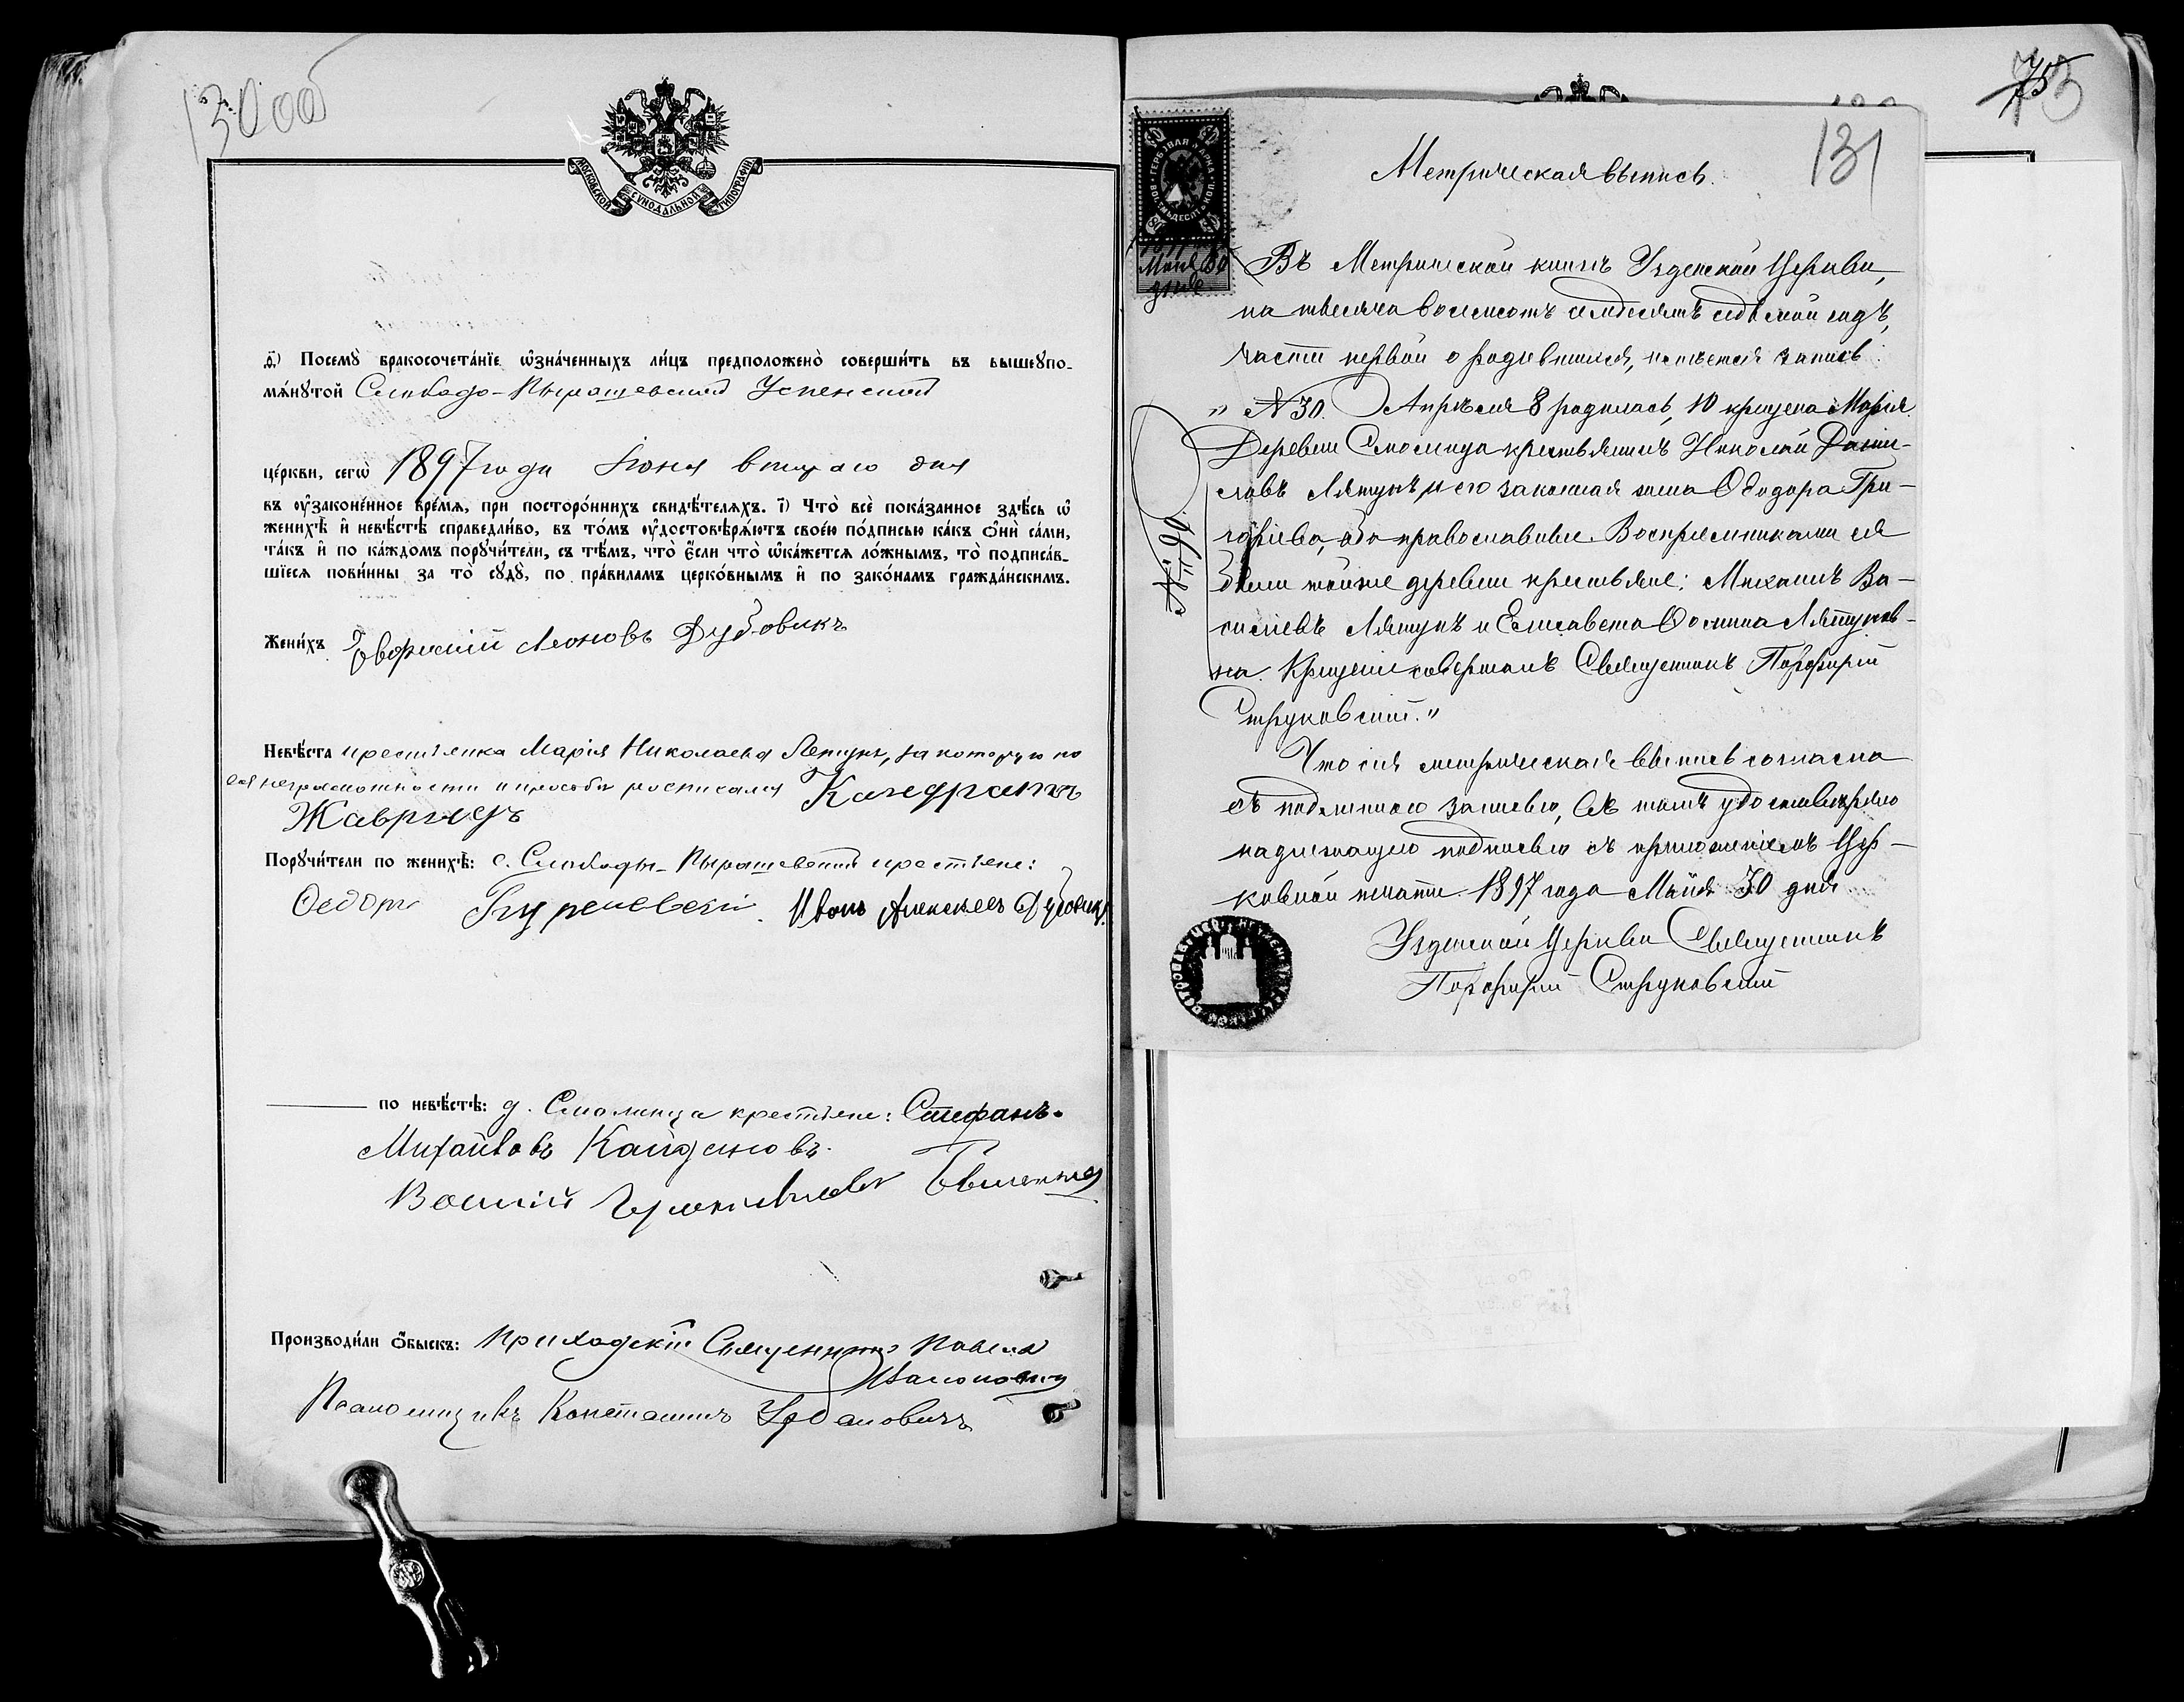 130 об
МОСКОВСКОЙ СѴНОДАЛЬНОЙ ТИПОГРАФІИ
Посемꙋ̀ бракосочета́нїе ѡ҆зна́ченныхъ ли́цъ предположено̀ соверши́ть въ вышеꙋпо-
мѧ́нꙋтой Слободо-Пырашевской Успенской
це́ркви, сегѡ̀ 1897 года Іюня втораго дня
въ ᲂу҆зако́не́нное вре́мя, при посторо́ннихъ свидѣ́теляхъ. і҃) Что̀ всѐ пока́занное здѣ́сь ѡ҆
женихѣ̀ и҆ невѣ́стѣ справедли́во, въ то́мъ ᲂу҆достовѣрѧ́ютъ свое́ю по́дписью ка́къ ѻ҆нѝ са́ми,
та́къ и҆ по ка́ждомъ порꙋчи́тели, съ тѣ́мъ, что̀ є҆́сли что̀ ѡ҆ка́жется ло́жнымъ, то̀ подписа́в-
шїеся пови́нны за то̀ сꙋдꙋ̀, по пра́виламъ церко́внымъ и҆ по зако́намъ гражда́нскимъ.
Жени́хъ Георгий Леоновъ Дубовикъ
Невѣ́ста крестьянка Марія Николаева Летунъ, за которую по
ея неграмотности и просьбѣ росписался Кандратъ
Жавридъ
Порꙋчи́тели по женихѣ̀: с. Слободы-Пырашевской крестьяне:
Федоръ Иванъ Алексѣевъ Дубовикъ
по невѣ́стѣ: д. Смолинца крестьяне: Стефанъ
Михайловъ Кайдановъ
Василій
Производи́ли ѻ҆́быскъ: Приходскій Священникъ Павелъ
Псаломщикъ Константинъ Урбановичъ
75
131
ГЕРБОВАЯ МАРКА ВОСЕМЬДЕСЯТЪ КОП.
Мая 30
дня
Метрическая выпись.
Въ Метрической книгѣ Узденской Церкви,
на тысяча восемсотъ семдесятъ седьмой годъ,
части первой о родившихся, имѣется запись:
„ N 30. Апрѣля 8 родилась, 10 крещена Марія.
Деревни Смолинца крестьянинъ Николай Дани-
ловъ Лятунъ и его законная жена Ѳеодора Гри-
горіева, оба православные. Воспріемниками ея
были тойже деревни крестьяне: Михаилъ Ва-
силіевъ Лятунъ и Елисавета Ѳомина Лятунов-
на. Крещеніе совершалъ Священникъ Порфирій
Струковскій.„
№ 96
Что сія метрическая выпись согласна
съ подлинною записью, въ томъ удостовѣряю
надлежащею подписью съ приложеніемъ Цер-
ковной печати 1897 года Мая 30 дня
Узденской Церкви Священникъ
Порфирій Струковскій